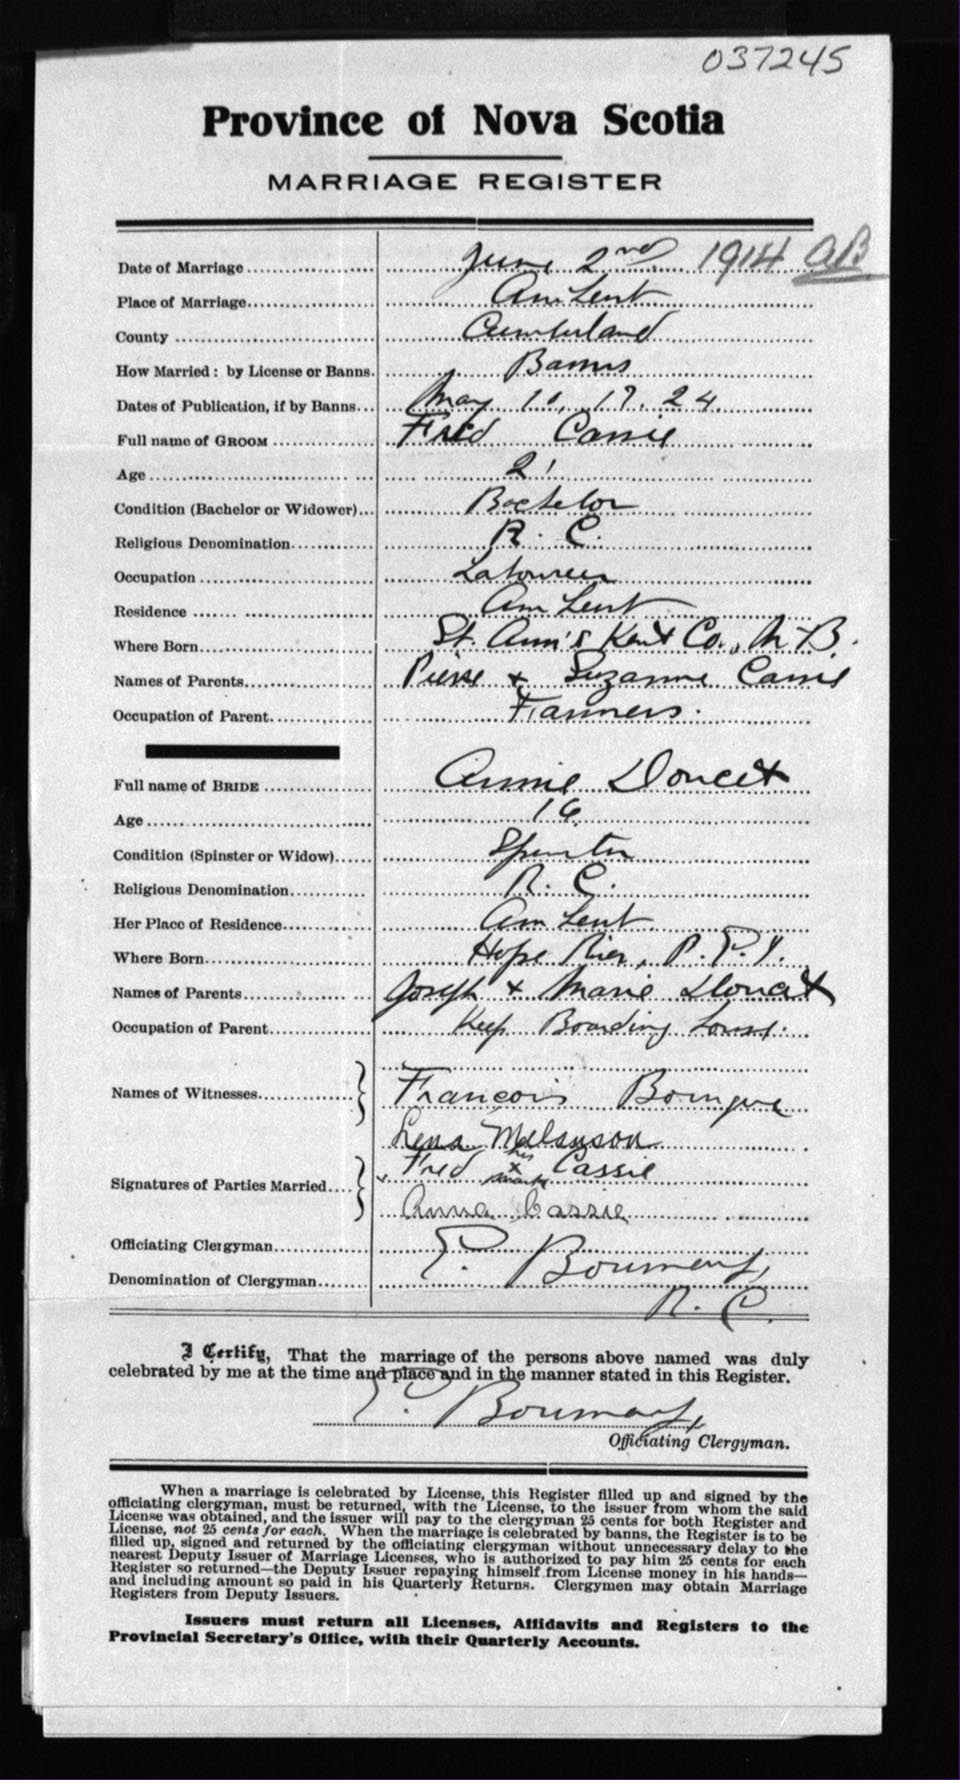 037245
Province of Nova Scotia
MARRIAGE REGISTER
Date of Marriage June 2nd 1914 AB
Place of Marriage Amherst
County Cumberland
How Married: by License or Banns. Banns
Dates of Publication, if by Banns May 10, 17, 24.
Full name of GROOM Fred Cassie
Age 21
Condition (Bachelor or Widower) Bachelor
Religious Denomination R. C.
Occupation Labourer
Residence Amherst
Where Born St. Ann's Kent Co., N.B.
Names of Parents Pierre & Suzanne Cassie
Occupation of Parent Farmers.
Full name of BRIDE Annie Doucet
Age 16
Condition (Spinster or Widow) Spinster
Religious Denomination R. C.
Her Place of Residence Amherst
Where Born Hope River, P.E.I.
Names of Parents Joseph & Marie Doucet
Occupation of Parent Keep Boarding house.
Names of Witnesses Francois Bourque
Lena Melanson
Signatures of Parties Married Fred his x mark Cassie
Anna Cassie
Officiating Clergyman E.
Denomination of Clergyman R. C.
I Certify, That the marriage of the persons above named was duly
celebrated by me at the time and place and in the manner stated in this Register.
Officiating Clergyman.
When a marriage is celebrated by License, this Register filled up and signed by the
officiating clergyman, must be returned, with the License, to the issuer from whom the said
License was obtained, and the issuer will pay to the clergyman 25 cents for both Register and
License, not 25 cents for each. When the marriage is celebrated by banns, the Register is to be
filled up, signed and returned by the officiating clergyman without unnecessary delay to the
nearest Deputy Issuer of Marriage Licenses, who is authorized to pay him 25 cents for each
Register so returned—the Deputy Issuer repaying himself from License money in his hands—
and including amount so paid in his Quarterly Returns. Clergymen may obtain Marriage
Registers from Deputy Issuers.
Issuers must return all Licenses, Affidavits and Registers to the
Provincial Secretary's Office, with their Quarterly Accounts.